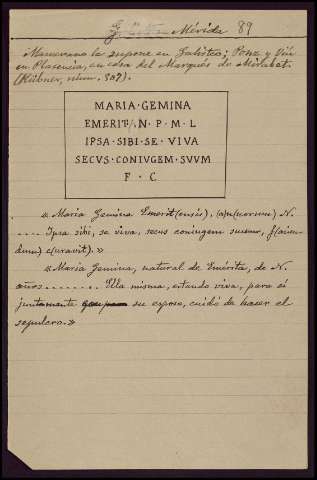 Mérida 89
Mamerano la supone en Galisteo; Ponz y Viú
en Plasencia, en casa del Marqués de Mirabel.
(Hübner, núm. 507).
MARIA·GEMINA
EMERIT·/\N·P·M·L
IPSA·SIBI·SE·VIVA
SECVS·CONIVGEM·SVVM
F·C
«Maria Gemina Emerit(ensis), (an(norum) N.
.... Ipsa sibi, se viva, secus coniugem suum, f(acien-
dum) c(uravit).»
«Maria Gemina, natural de Emérita, de N.
años ....... Ella misma, estando viva, para sí
juntamente su esposo, cuidó de hacer el
sepulcro.»